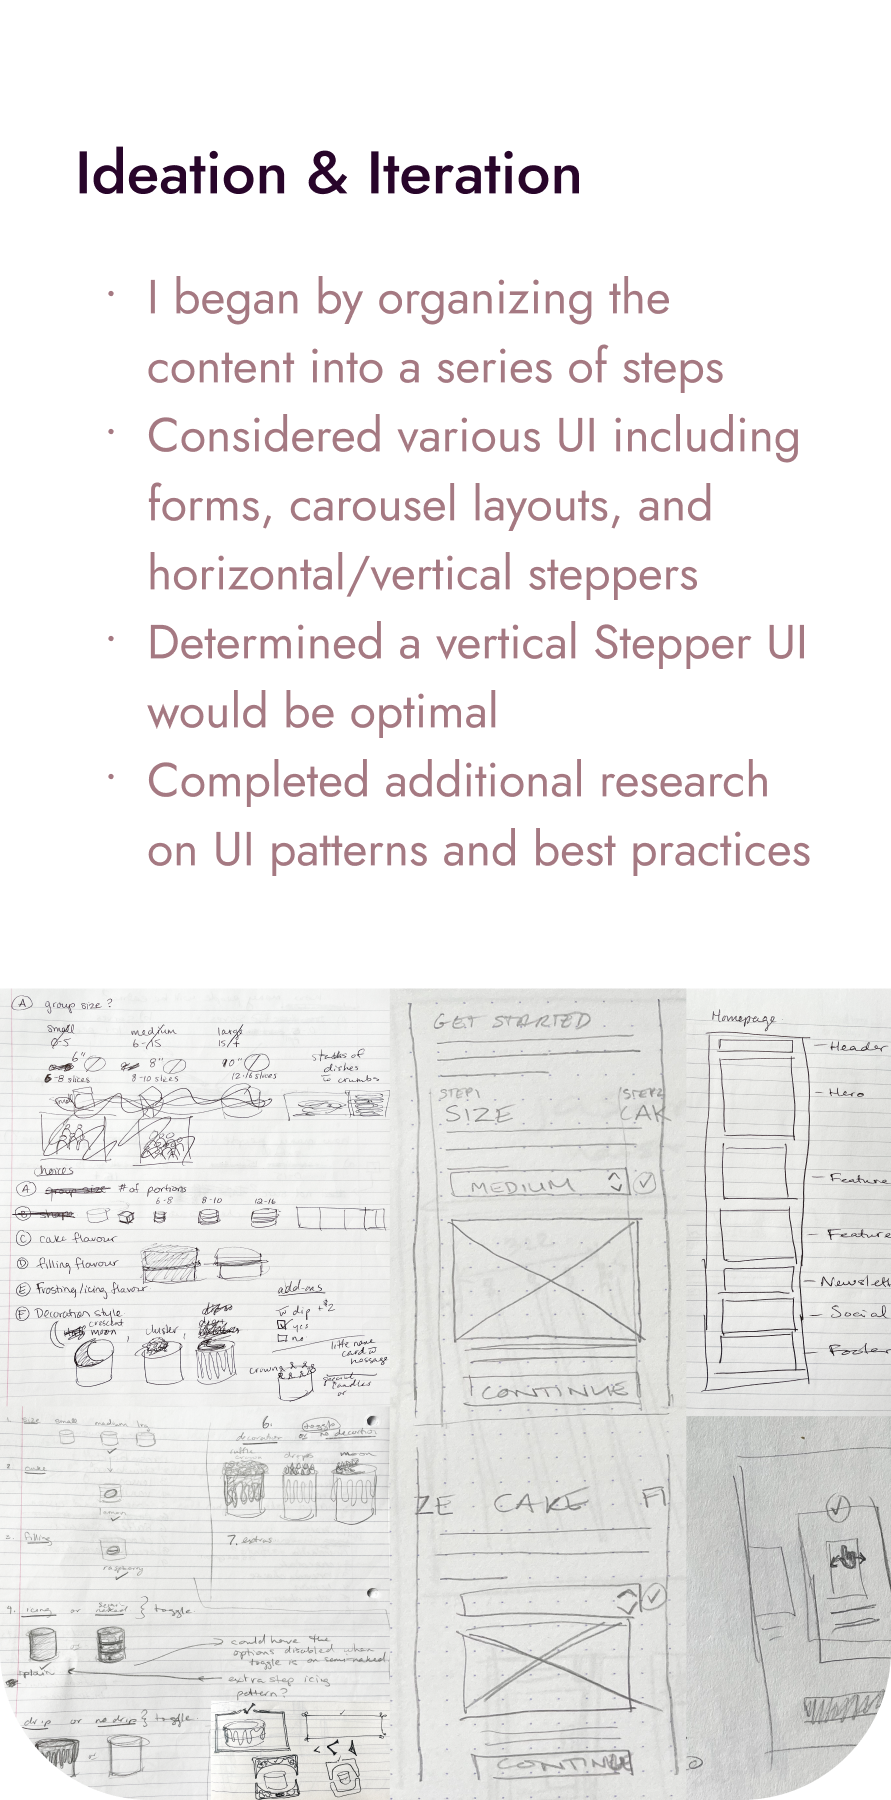 Ideation & Iteration
· I began by organizing the
content into a series of steps
· Considered various UI including
forms, carousel layouts, and
horizontal/vertical steppers
· Determined a vertical Stepper UI
would be optimal
· Completed additional research
on UI patterns and best practices
A group size?
small medium large
0-5 6-15 15+
6" 8" 10"
6-8 slices 8-10 slices 12-16 slices
stacks of
dishes
w crumbs
choices
A group size # of portions
6-8 8-10 12-16
B shape
C cake flavour
D filling flavour
E Frosting/icing flavour
F Decoration style
crescent
moon, cluster,
add-ons
w dip +$2
yes
no
little name
card w
message
crown
candles
or
GET STARTED
STEP1 STEP2
SIZE CAK
MEDIUM
CONTINUE
Homepage
Header
Hero
Feature
Feature
Newslett
Social
Footer
1. size small medium
2. cake
lemon
3. filling
raspberry
4. icing or semi-naked } toggle
plain
could have the
options disabled when
toggle is on semi-naked
extra step icing
pattern?
drip or no drip } toggle
6. toggle
decoration or no decoration
drips moon
7. extras
ZE CAKE FI
CONTINUE